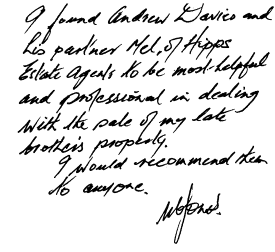 I found Andrew Davies and
his partner Mel, of Hipps
Estate Agents to be most helpful
and professional in dealing
with the sale of my late
brother's property.
I would recommend them
to anyone.